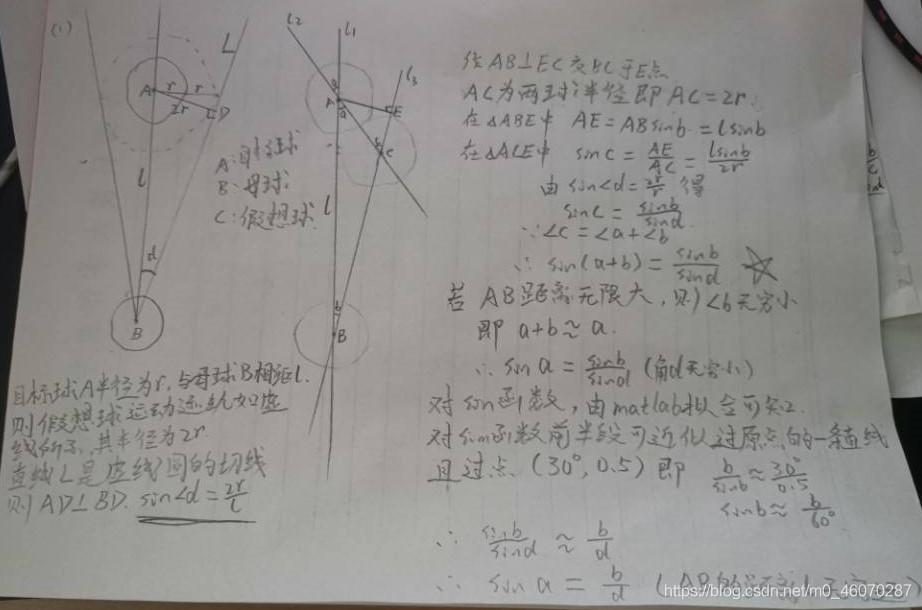 (1)
L
A r r
2r
D
l
d
B
A:目标球
B:母球
C:假想球
l₂ l₁
l₃
A
a
E
C
l
b
B
目标球A半径为r,与母球B相距l.
则假想球运动迹轨如虚
线所示,其半径为2r.
直线L是虚线圆的切线
则AD⊥BD. sin∠d=2r/l
作AB⊥EC交BC于E点
AC为两球半径即AC=2r.
在△ABE中 AE=ABsinb=lsinb
在△ACE中 sinc=AE/AC=lsinb/2r
由sin∠d=2r/r 得
sinc=sinb/sind
∵∠c=∠a+∠b
∴ sin(a+b)=sinb/sind ☆
若AB距离无限大,则∠b无穷小
即 a+b≈a.
∴ sin a=sinb/sind (角d无穷小)
对sin函数,由matlab拟合可知.
对sin函数前半段可近似过原点的一条直线
且过点(30°,0.5)即 b/sinb≈30°/0.5
sinb≈b/60°
∴ sinb/sind≈b/d
∴ sin a=b/d (AB的
https://blog.csdn.net/m0_46070287